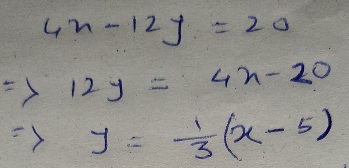 4x-12y = 20
=> 12y = 4x-20
=> y = 1/3 (x-5)